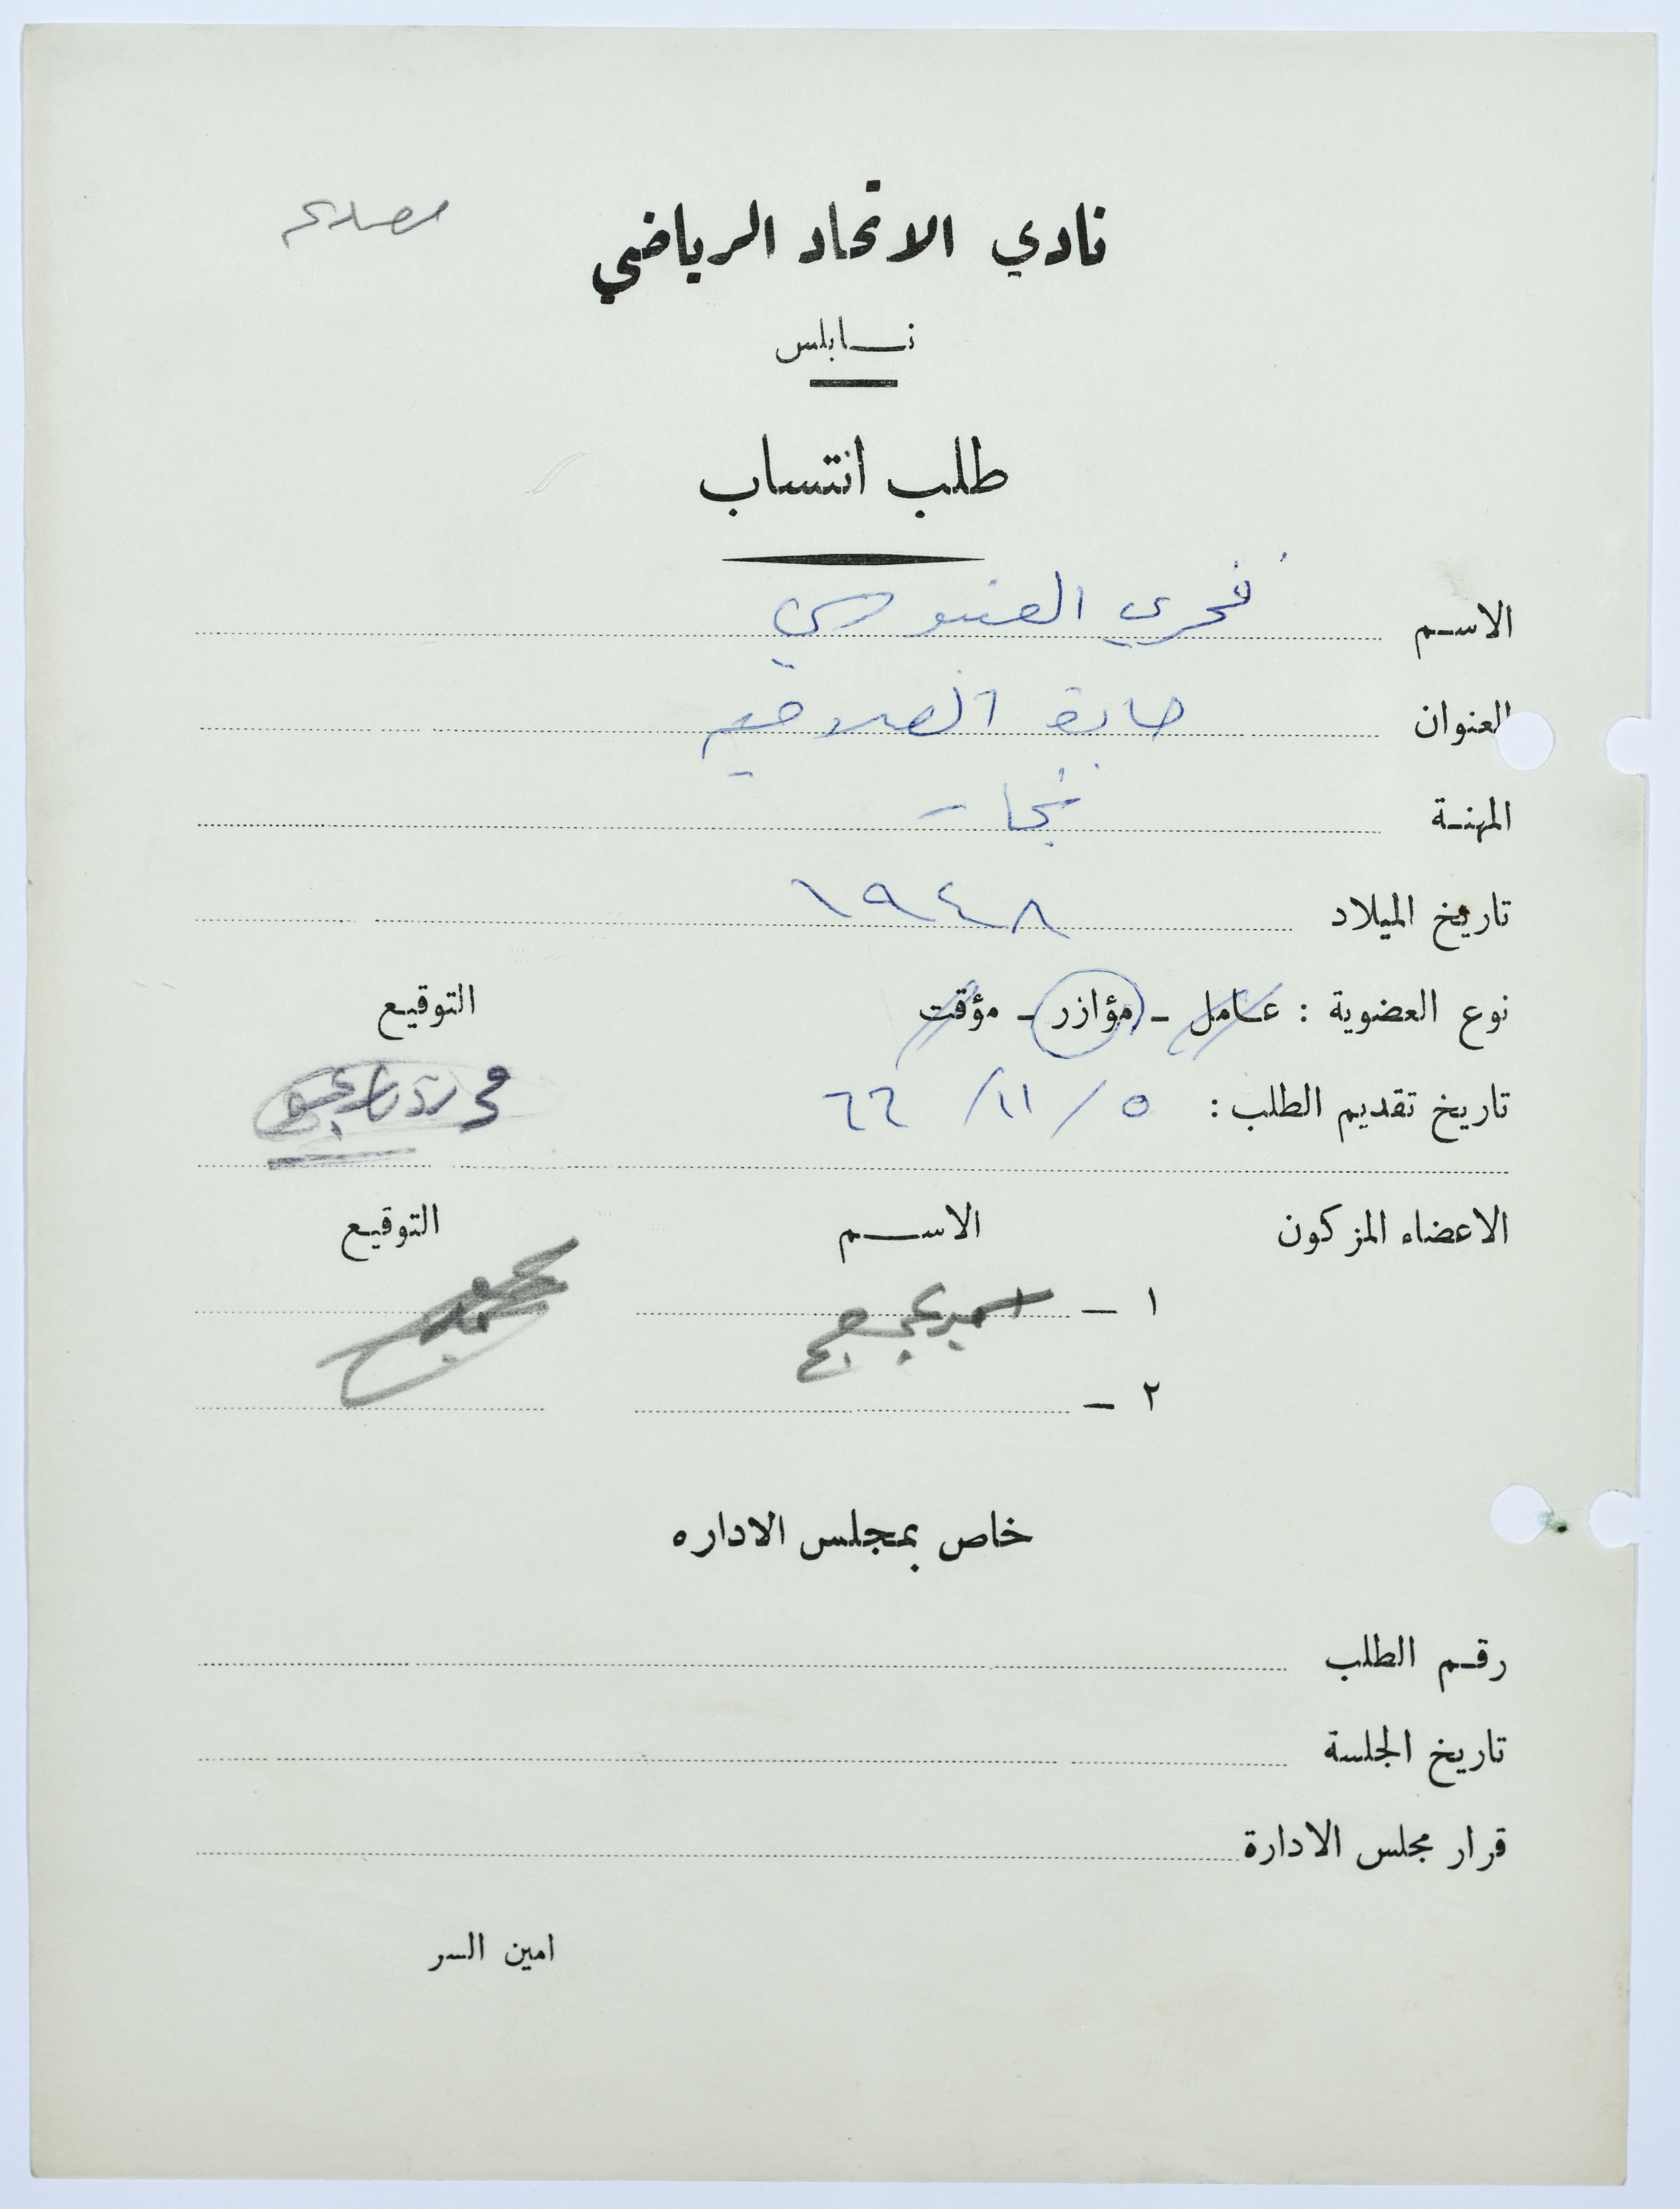 نادي الاتحاد الرياضي
نـــابلس
طلب انتساب
الاسـم فخري العنبوسي
العنوان حارة
المهنـة نجار
تاريخ الميلاد ١٩٤٨
نوع العضوية : عـامل - مؤازر - مؤقت التوقيـع
تاريخ تقديم الطلب : ٥ / ١١ / ٦٦
الاعضاء المزكون الاســـم التوقيـع
١ —
٢ —
خاص بمجلس الاداره
رقـم الطلب
تاريخ الجلسة
قرار مجلس الادارة
امين السر